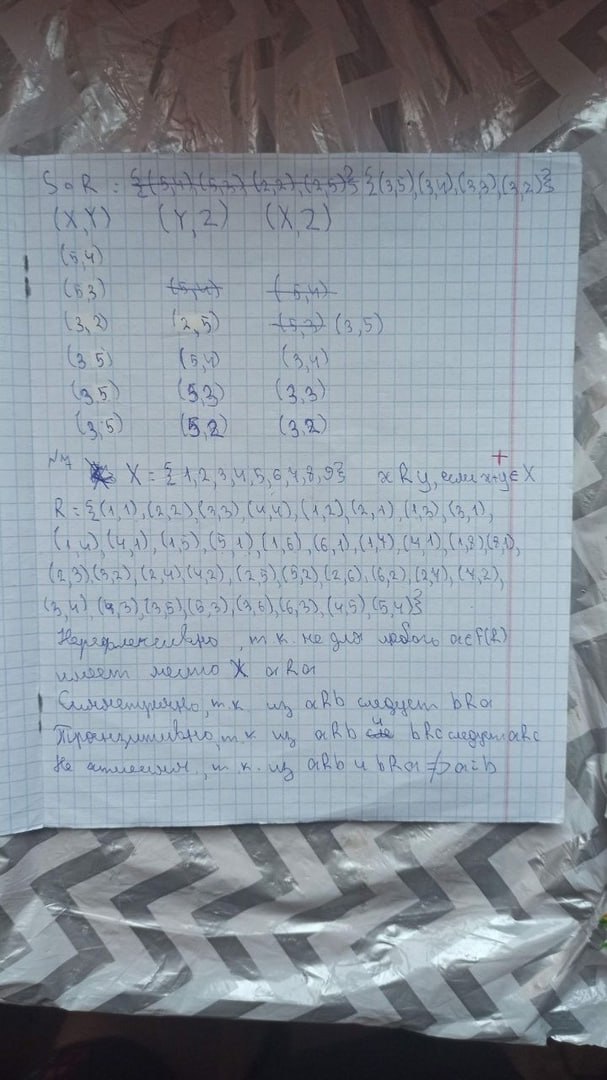 S∘R : {(5,4),(5,3),(2,2),(3,5)} {(3,5),(3,4),(3,3),(3,2)}
(X,Y) (Y,Z) (X,Z)
(5,4)
(5,3) (5,4) (5,4)
(3,2) (2,5) (5,3) (3,5)
(3,5) (5,4) (3,4)
(3,5) (5,3) (3,3)
(3,5) (5,2) (3,2)
№7 X = {1,2,3,4,5,6,7,8,9} xRy, если x+y ∈ X
R = {(1,1),(2,2),(3,3),(4,4),(1,2),(2,1),(1,3),(3,1),
(1,4),(4,1),(1,5),(5,1),(1,6),(6,1),(1,7),(7,1),(1,8),(8,1),
(2,3),(3,2),(2,4),(4,2),(2,5),(5,2),(2,6),(6,2),(2,7),(7,2),
(3,4),(4,3),(3,5),(5,3),(3,6),(6,3),(4,5),(5,4)}
Нерефлексивно, т.к. не для любого a∈F(R)
имеет место aRa
Симметрично, т.к. из aRb следует bRa
Транзитивно, т.к. из aRb и bRc следует aRc
Не, т.к. из aRb и bRa ≠> a=b